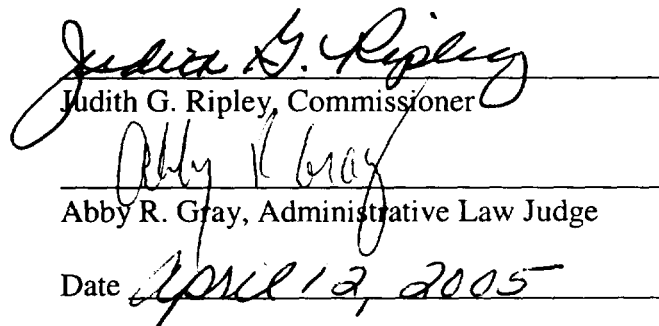 Judith G. Ripley
Judith G. Ripley, Commissioner
Abby R Gray
Abby R. Gray, Administrative Law Judge
Date April 12, 2005